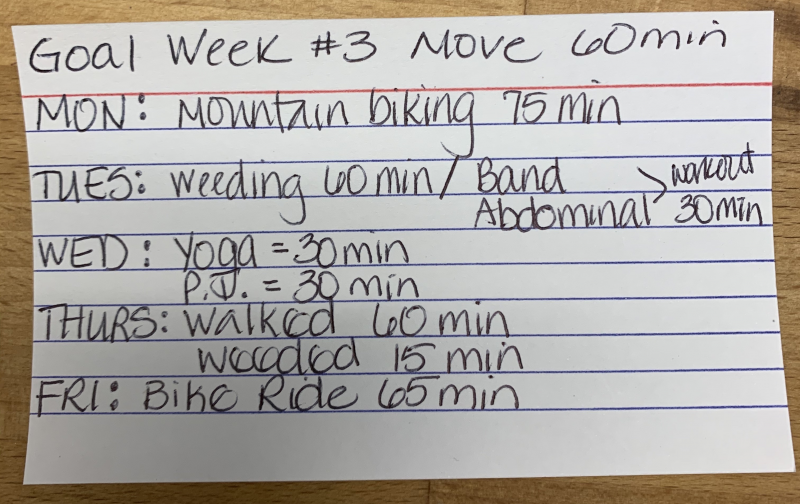 Goal Week #3 Move 60min
MON: Mountain biking 75 min
TUES: Weeding 60 min / Band Abdominal > workout 30 min
WED: Yoga = 30 min
P.T. = 30 min
THURS: Walked 60 min
Weeded 15 min
FRI: Bike Ride 65 min